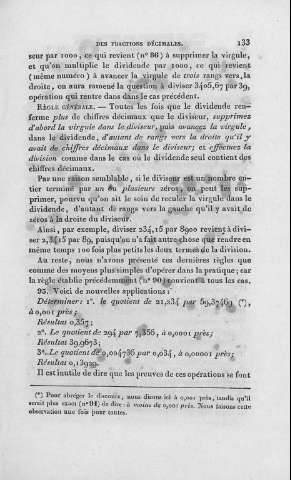 DES FRACTIONS DÉCIMALES. 133
seur par 1000, ce qui revient (n° 86) à supprimer la virgule,
et qu'on multiplie le dividende par 1000, ce qui revient
(même numéro) à avancer la virgule de trois rangs vers la
droite, on aura ramené la question à diviser 3405,67 par 39,
opération qui rentre dans dans le cas précédent.
RÈGLE GÉNÉRALE. — Toutes les fois que le dividende ren-
ferme plus de chiffres décimaux que le diviseur, supprimez
d'abord la virgule dans le diviseur, puis avancez la virgule,
dans le dividende, d'autant de rangs vers la droite qu'il y
avait de chiffres décimaux dans le diviseur; et effectuez la
division comme dans le cas où le dividende seul contient des
chiffres décimaux.
Par une raison semblable, si le diviseur est un nombre en-
tier terminé par un ou plusieurs zéros, on peut les sup-
primer, pourvu qu'on ait le soin de reculer la virgule dans le
dividende, d'autant de rangs vers la gauche qu'il y avait de
zéros à la droite du diviseur.
Ainsi, par exemple, diviser 234,15 par 8900 revient à divi-
ser 2,3415 par 89, puisqu'on n'a fait autre chose que rendre en
même temps 100 fois plus petits les deux termes de la division.
Au reste, nous n'avons présenté ces dernières règles que
comme des moyens plus simples d'opérer dans la pratique; car
la règle établie précédemment (n° 90) convient à tous les cas.
95. Voici de nouvelles applications :
Déterminer: 1°. le quotient de 21,234 par 59,37469 (*),
à 0,001 près;
Résultat 0,357;
2°. Le quotient de 294 par 7,356, à 0,0001 près;
Résultat 39,9673;
3°. Le quotient de 0,004736 par 0,034, à 0,00001 près;
Résultat 0,13929.
Il est inutile de dire que les preuves de ces opérations se font
(*) Pour abréger le discours, nous disons ici à 0,001 près, tandis qu'il
serait plus exact (n° 94) de dire: à moins de 0,001 près. Nous faisons cette
observation une fois pour toutes.